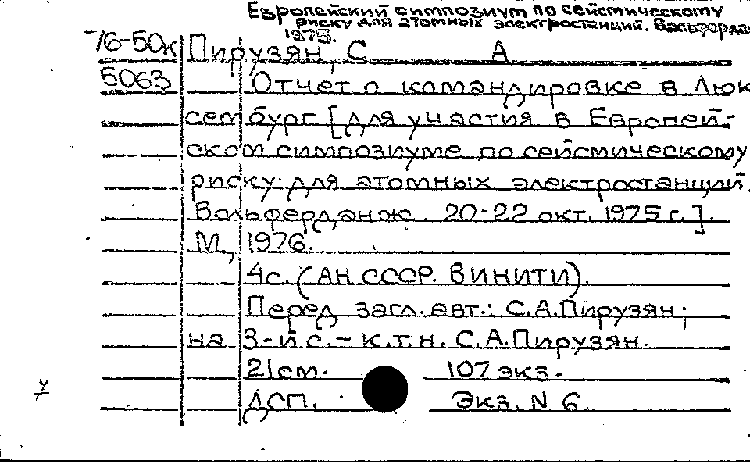 Европейский симпозиум по сейсмическому
риску для атомных электростанций. Вальферда
1975.
76-50к Пирузян, С А
5063 Отчет о командировке в Люк-
сембург [для участия в Европей-
ском симпозиуме по сейсмическому
риску для атомных электростанций.
Вальферданж. 20-22 окт. 1975 г.].
М., 1976.
4с. (АН СССР. ВИНИТИ).
Перед загл. авт.: С.А.Пирузян;
на 3-й с. - к.т.н. С.А.Пирузян.
21см. 107 экз.
ДСП. Экз. N 6